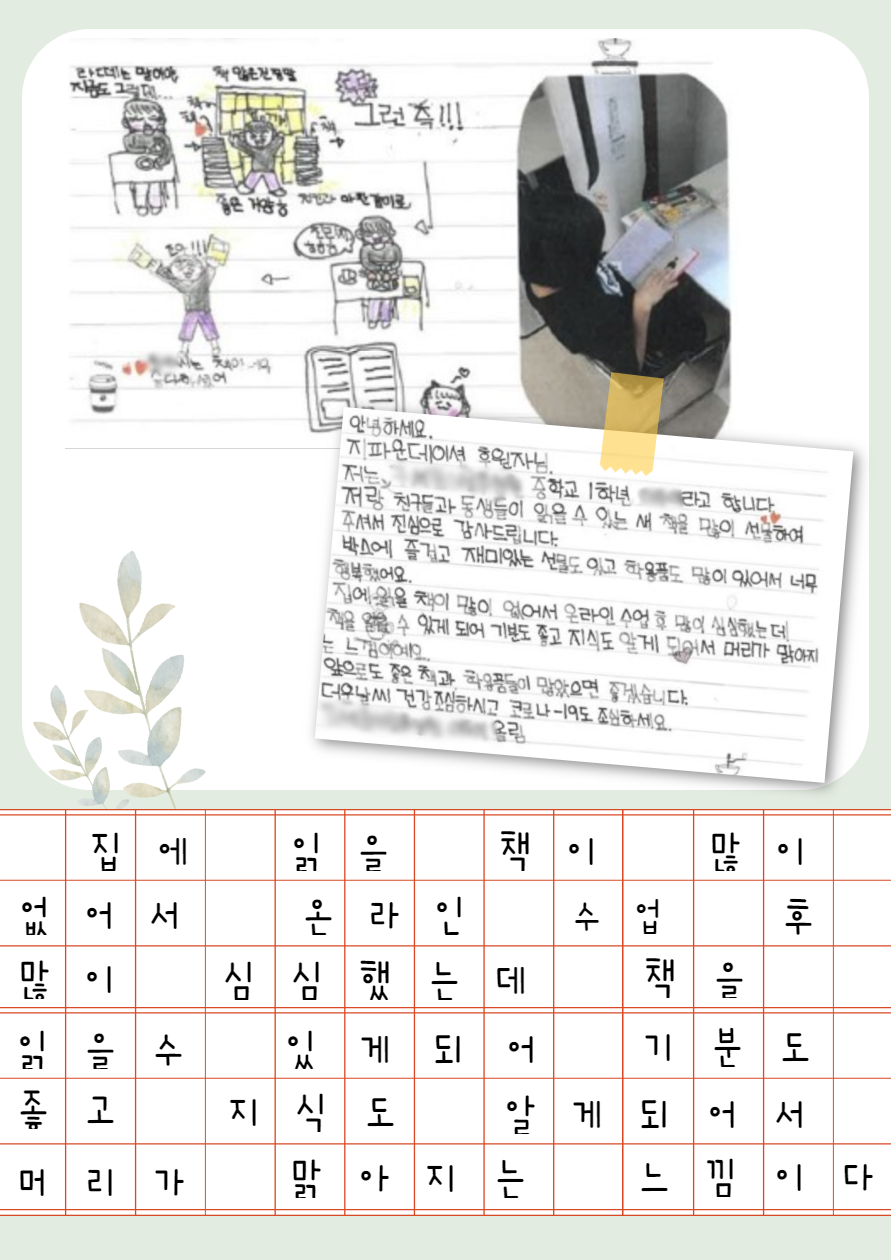 책 많은 진평말
그런 즉!!!
좋은 거랑능
조아!!!
안녕하세요.
지파운데이션 후원자님.
저는 중학교 1학년 라고 합니다.
저랑 친구들과 동생들이 읽을 수 있는 새 책을 많이 선물하여
주셔서 진심으로 감사드립니다.
박스에 즐겁고 재미있는 선물도 있고 학용품도 많이 있어서 너무
행복했어요.
집에 읽을 책이 많이 없어서 온라인 수업 후 많이 심심했는데
책을 읽을 수 있게 되어 기분도 좋고 지식도 알게 되어서 머리가 맑아지
는 느낌이에요.
앞으로도 좋은 책과 학용품들이 많았으면 좋겠습니다.
더운날씨 건강조심하시고 코로나-19도 조심하세요.
올림
집에 읽을 책이 많이
없어서 온라인 수업 후
많이 심심했는데 책을
읽을수 있게되어 기분도
좋고 지식도 알게되어서
머리가 맑아지는 느낌이다